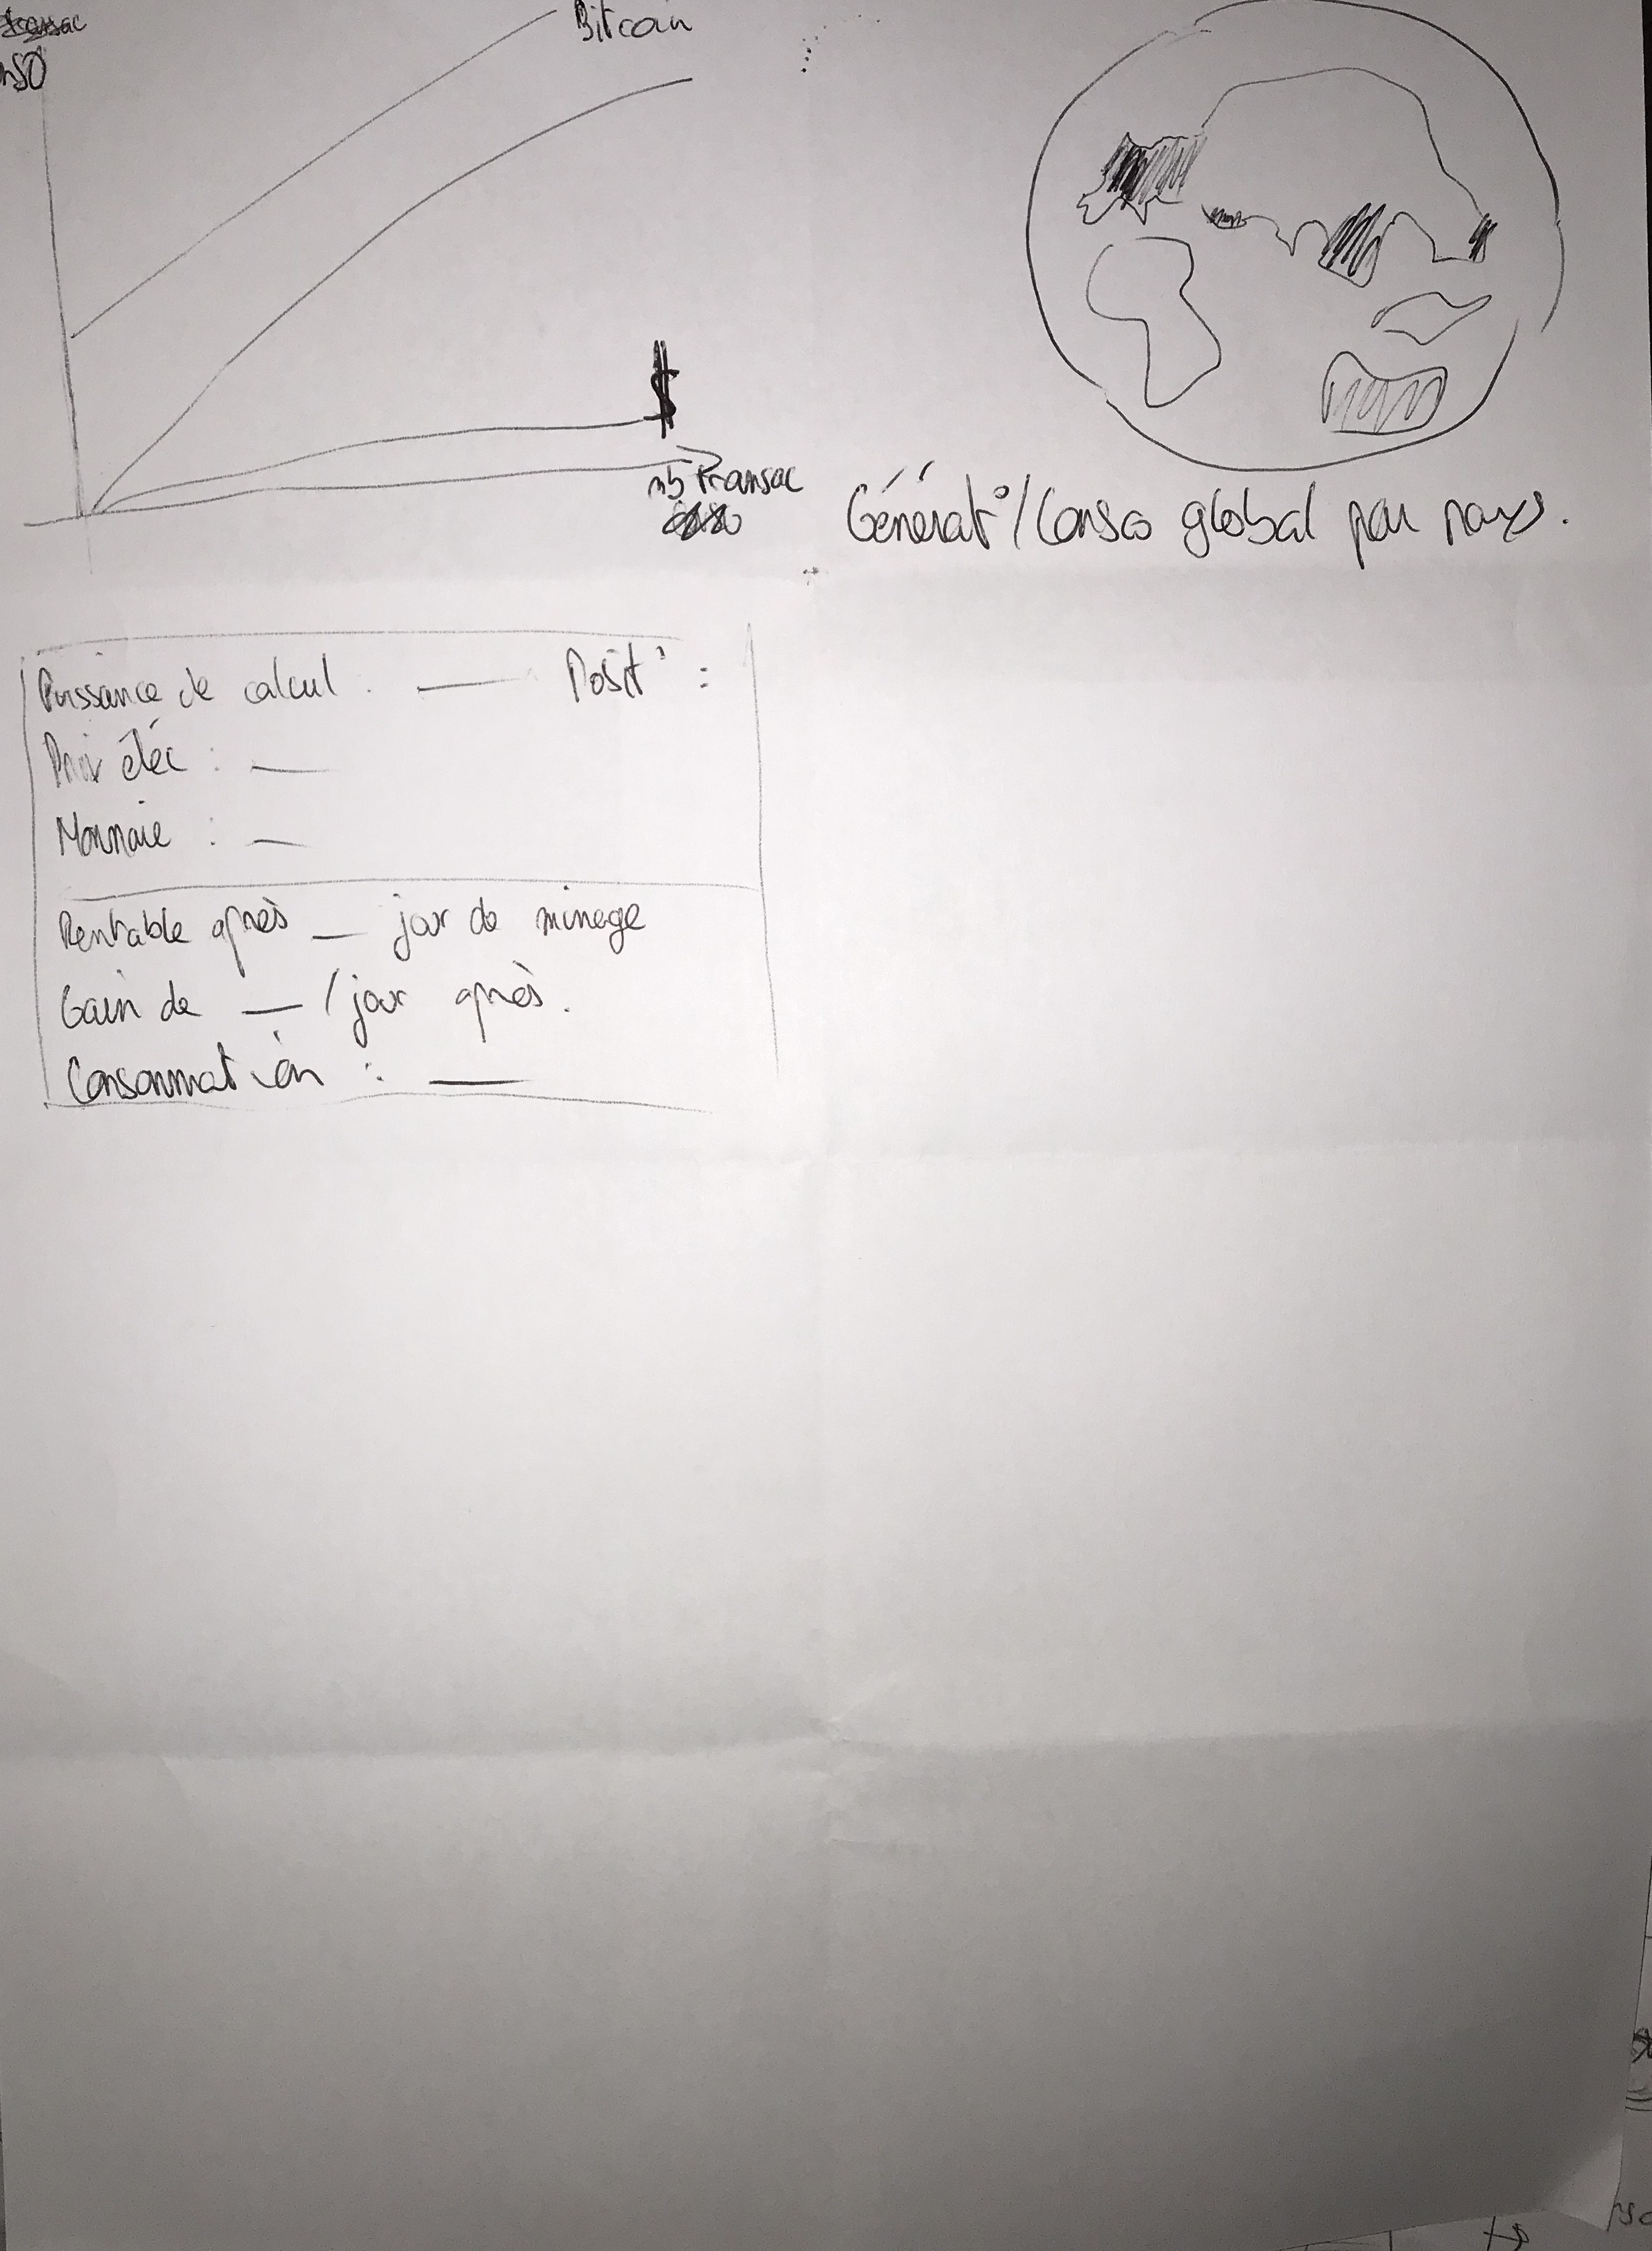 Bitcoin
$
nb transac
Générat°/Conso global par pays.
Puissance de calcul : Posit° :
Prix élec :
Monnaie :
Rentable après _ jour de minage
Gain de _ / jour après.
Consommation :